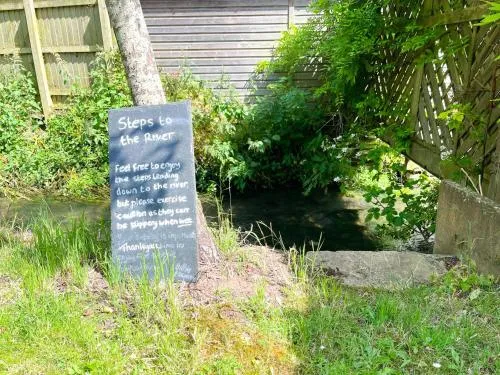 Steps to
the River
Feel free to enjoy
the steps leading
down to the river,
but please exercise
caution as they can
be slippery when wet
Thankyou